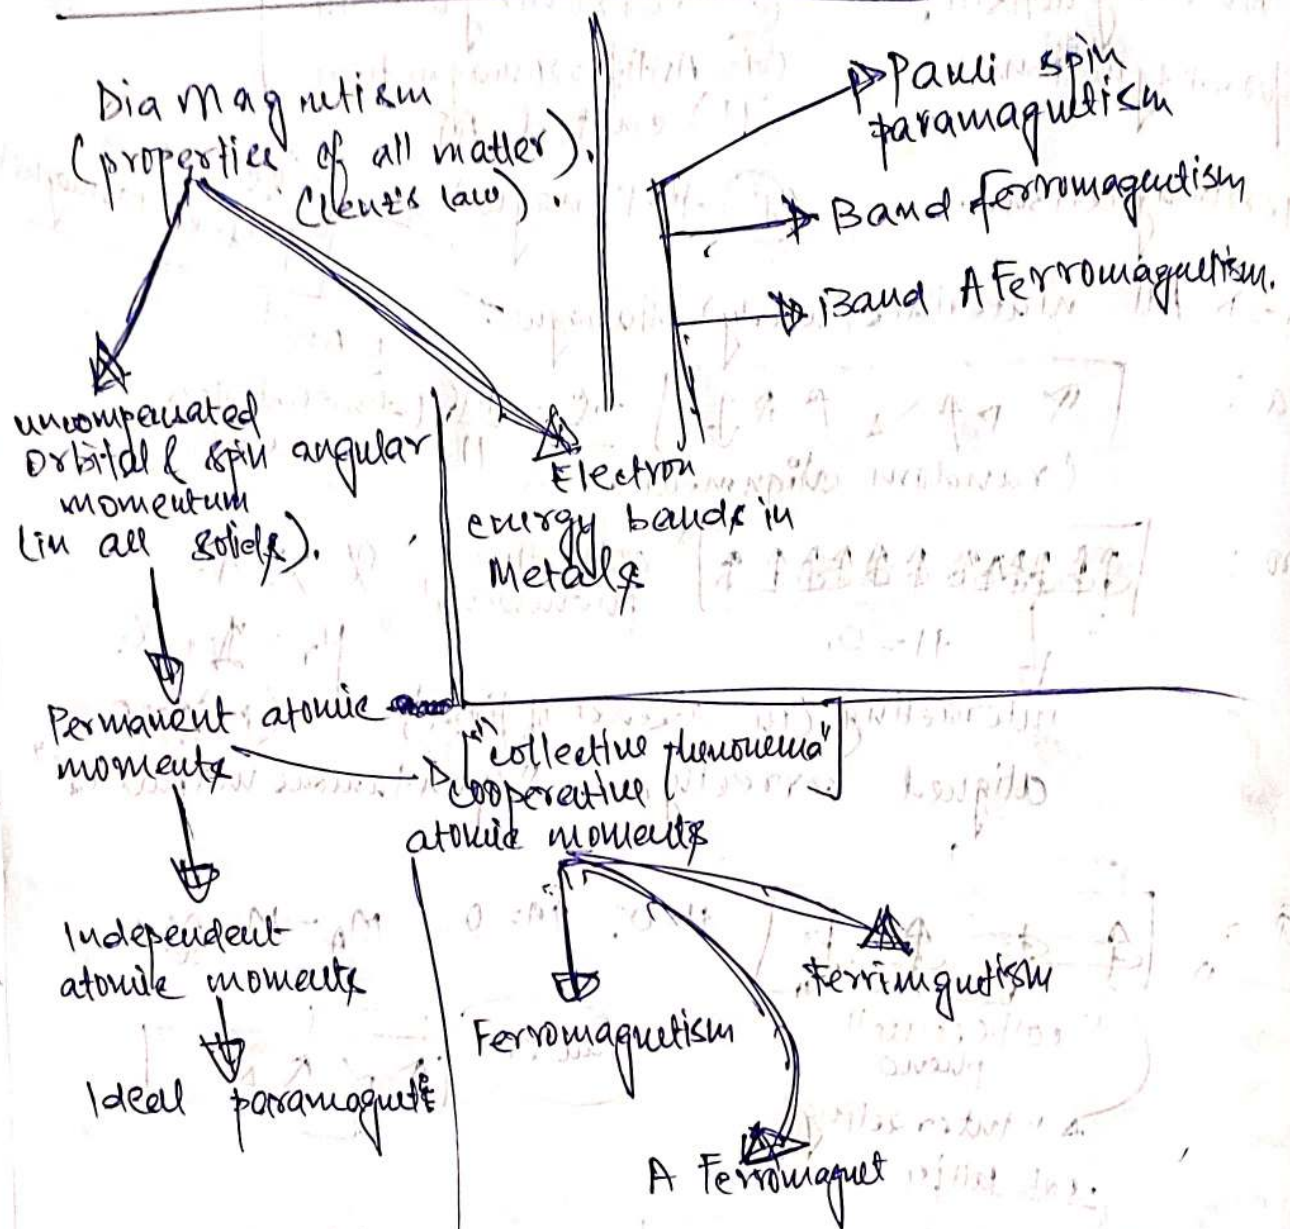 Dia Magnetism
(properties of all matter).
(lenz's law).
Pauli spin
paramagnetism
Band ferromagnetism
Band A Ferromagnetism.
uncompensated
orbital & spin angular
momentum
(in all solids).
Electron
energy bands in
Metals
Permanent atomic
moments
"collective phenonema"
cooperative
atomic moments
Independent
atomic moments
Ideal paramagnet
Ferromagnetism
Ferrimgnetism
A Ferromagnet